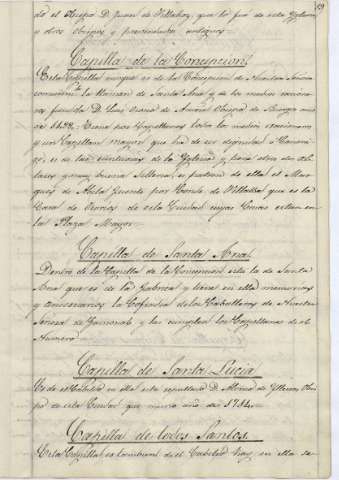 do el Obispo D. Juan de Villahoz, que lo fue de esta Iglesia
y otros Obispos y prevendados antiguos.
Capilla de la Concepcion
Esta Capilla aunque es de la Concepcion de Nuestra Señora
comunm.te la llaman de Santa Ana y de los medios racioneros
fundola D. Luis Osorio de Acuña Obispo de Burgos año
de 1488. Tiene por Capellanes todos los medios racioneros
y un Capellan mayor que ha de ser dignidad o Canoni-
go, es de las suntuosas de la Iglesia, y tiene otros dos Al-
tares y muy buena Silleria, es patron de ella el Mar-
qués de
por Conde de Villalba que es la
Casa de de esta Ciudad cuyas Casas estan en
la Plaza Mayor.
Capilla de Santa Ana
Dentro de la Capilla de la Concepcion está la de Santa
Ana que es de la fabrica y tiene en ella memorias
y aniversarios la Cofradia de los Caballeros de Nuestra
Señora de Gamonal y las cumplen los Capellanes de el
Numero
Capilla de Santa Lucia
Es de el Cabildo en ella está sepultado D. Obis-
po de esta Ciudad que murio año de
Capilla de todos Santos.
Esta Capilla es tambien de el Cabildo hay en ella se